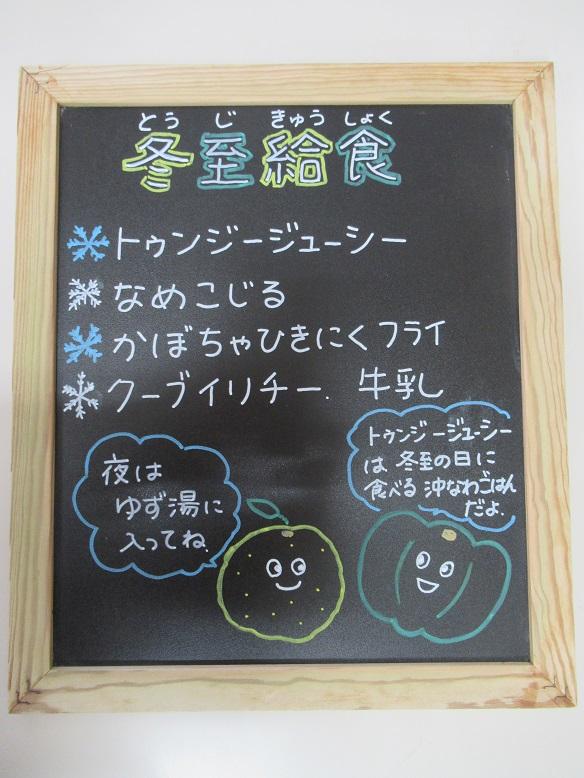 とうじきゅうしょく
冬至給食
トゥンジージューシー
なめこじる
かぼちゃひきにくフライ
クーブイリチー. 牛乳
トゥンジージューシー
は 冬至の日に
食べる 沖なわごはん
だよ.
夜は
ゆず湯に
入ってね.